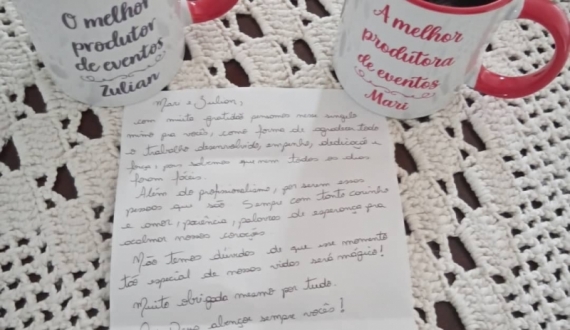 O melhor
produtor
de eventos
Zulian
A melhor
produtora
de eventos
Mari
Mari e Zulian,
com muita gratidão pensamos nesse singelo
mimo pra vocês, como forma de agradecer todo
o trabalho desenvolvido, empenho, dedicação e
força, pois sabemos que nem todos os dias
foram fáceis.
Além do profissionalismo, por serem essas
pessoas que são. Sempre com tanto carinho
e amor, paciência, palavras de esperança pra
acalmar nossos corações
Não temos dúvidas de que esse momento
tão especial de nossas vidas será mágico!
Muito obrigado mesmo por tudo.
Deus abençoe sempre vocês!